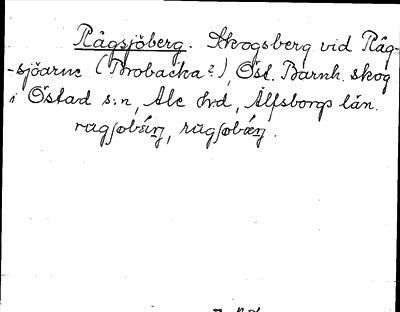 Rågsjöberg. Skogsberg vid Råg-
-sjöarne (Brobacka?), Öst. Barnh. skog
i Östad s:n, Ale hrd, Älfsborgs län.